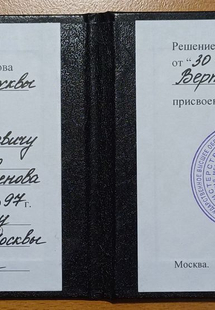 ова
осквы
евичу
о
енова
97 г.
у
осквы
Решение
от “30
Верх
присвоен
Москва.